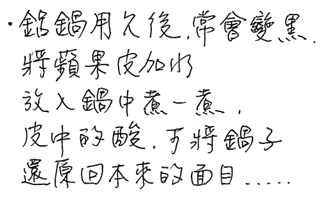 ·鋁鍋用久後,常會變黑.
將蘋果皮加水
放入鍋中煮一煮,
皮中的酸.可將鍋子
還原回本來的面目.....